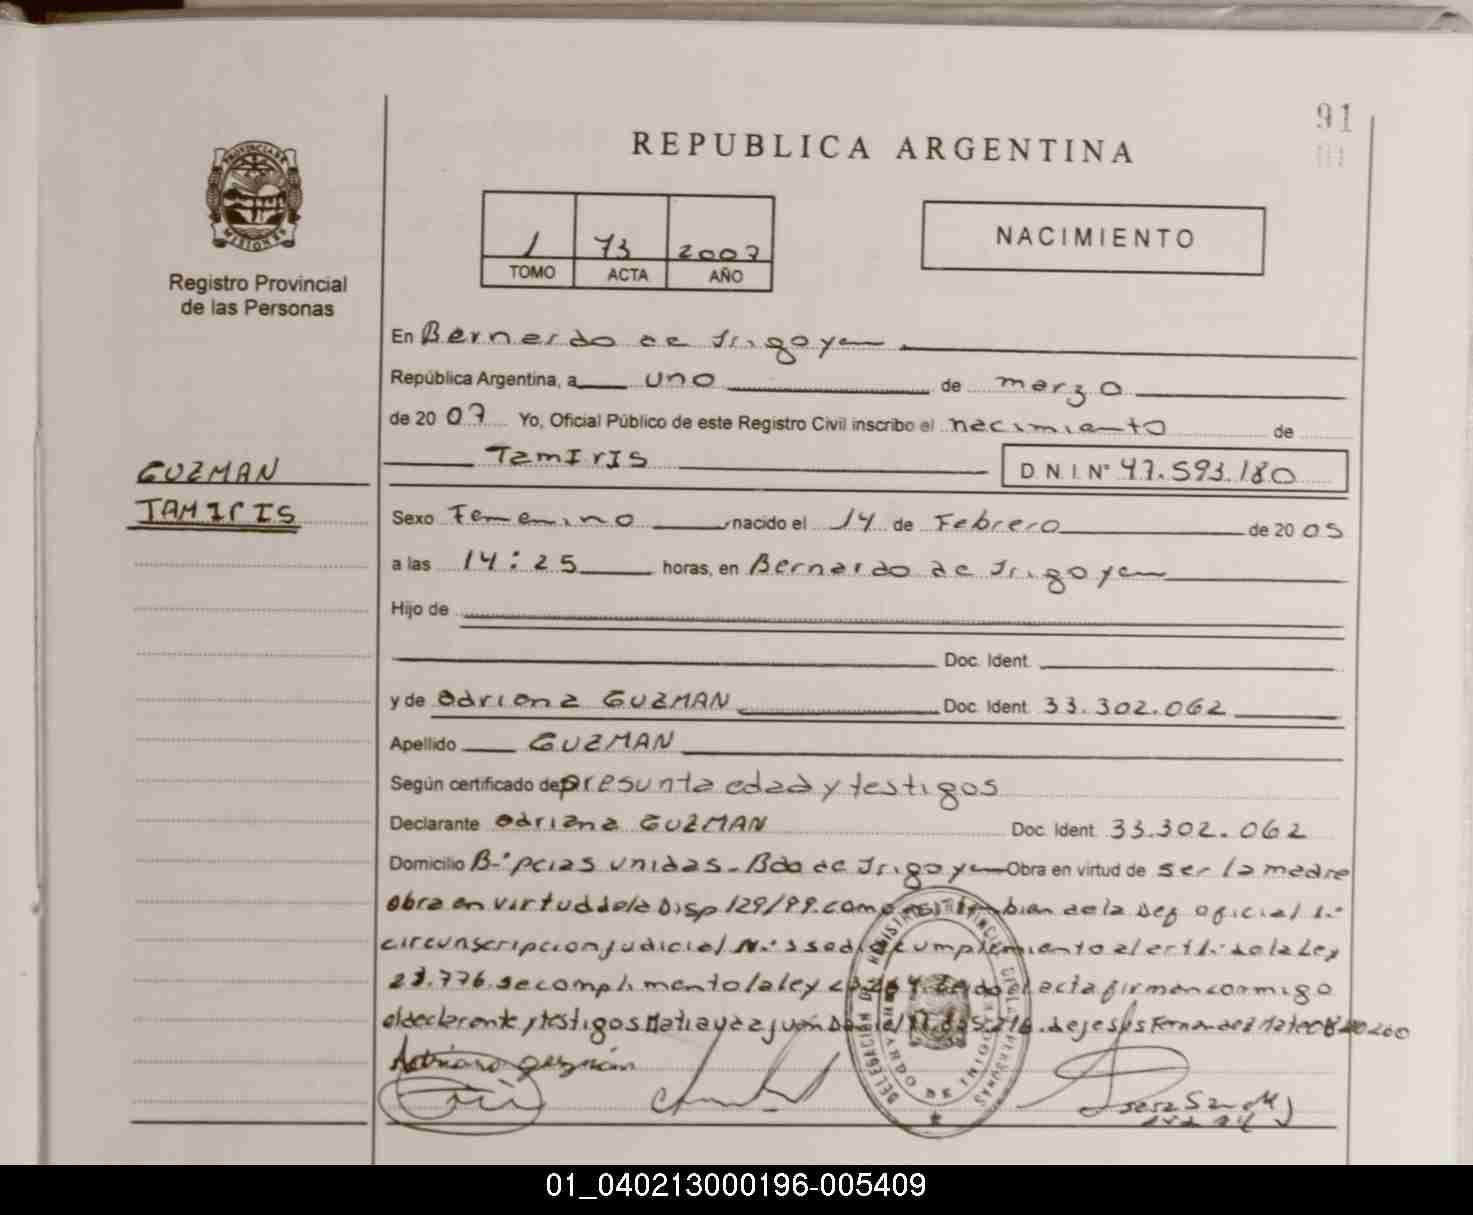 91
REPUBLICA ARGENTINA
PROVINCIA DE MISIONES
Registro Provincial
de las Personas
1 73 2007
TOMO ACTA AÑO
NACIMIENTO
En Bernardo de Irigoyen
República Argentina, a uno de marzo
de 2007 Yo, Oficial Público de este Registro Civil inscribo el nacimiento de
GUZMAN
TAMIRIS
TamIrIS D.N.I. N° 47.593.180
Sexo Femenino nacido el 14 de Febrero de 2005
a las 14:25 horas, en Bernardo de Irigoyen
Hijo de
Doc. Ident.
y de adriana GUZMAN Doc. Ident. 33.302.062
Apellido GUZMAN
Según certificado de presunta edad y testigos
Declarante adriana GUZMAN Doc. Ident. 33.302.062
Domicilio B.° pcias unidas - Bdo de Irigoyen Obra en virtud de ser la madre
obra en virtud de la Disp 129/99. como tambien de la Def oficial 1.°
circunscripcion judicial N.° cumplimiento al art 1.° de la Ley
23.776. se complimento la ley el acta firman conmigo
el declarante, testigos Juan Daniel de Jesus Fernandez
Adriana guzmán
DELEGACION DEL REGISTRO PROVINCIAL DE LAS PERSONAS
BERNARDO DE IRIGOYEN
01_040213000196-005409